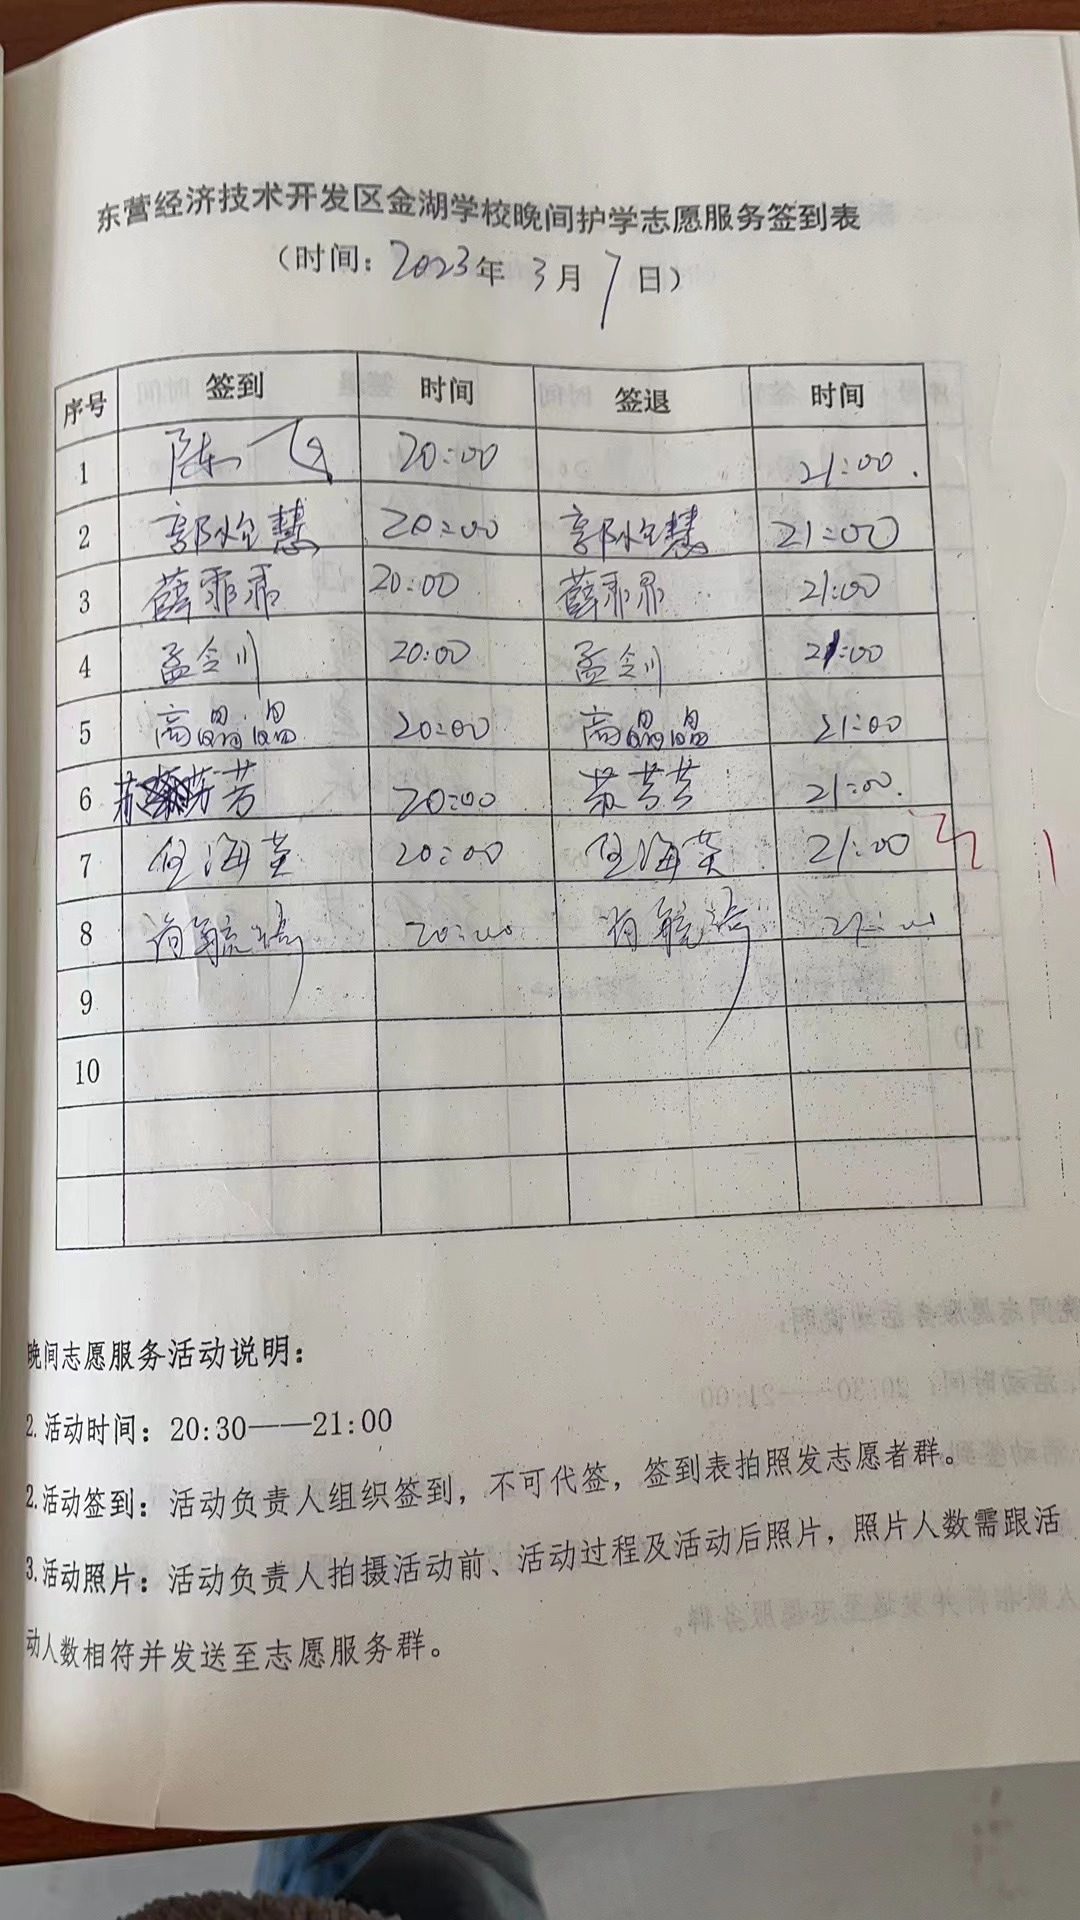 东营经济技术开发区金湖学校晚间护学志愿服务签到表
（时间：2023年 3月 7日）
序号 签到 时间 签退 时间
1 陈飞 20:00 21:00.
2 郭 慧 20:00 郭 慧 21:00
3 薛 20:00 薛 21:00
4 孟令川 20:00 孟令川 21:00
5 高晶晶 20:00 高晶晶 21:00
6 苏芳芳 20:00 苏芳芳 21:00.
7 任海英 20:00 任海英 21:00
8 20:00 21:00
9
10
晚间志愿服务活动说明：
2.活动时间：20:30——21:00
2.活动签到：活动负责人组织签到，不可代签，签到表拍照发志愿者群。
3.活动照片：活动负责人拍摄活动前、活动过程及活动后照片，照片人数需跟活
动人数相符并发送至志愿服务群。